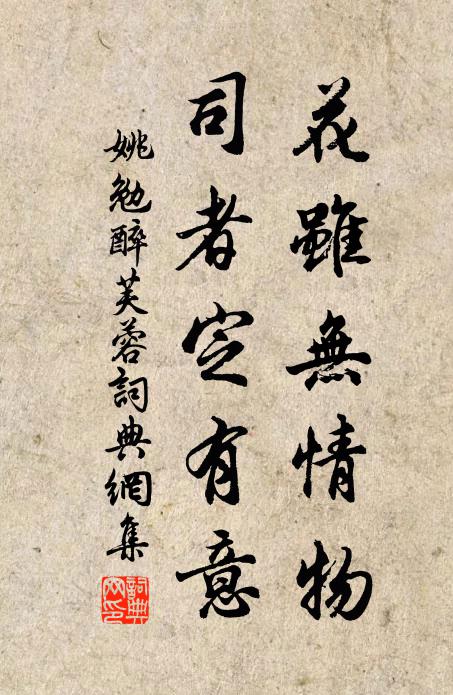 花雖無情物
司者定有意
姚勉醉芙蓉詞典網集
詞典
网印